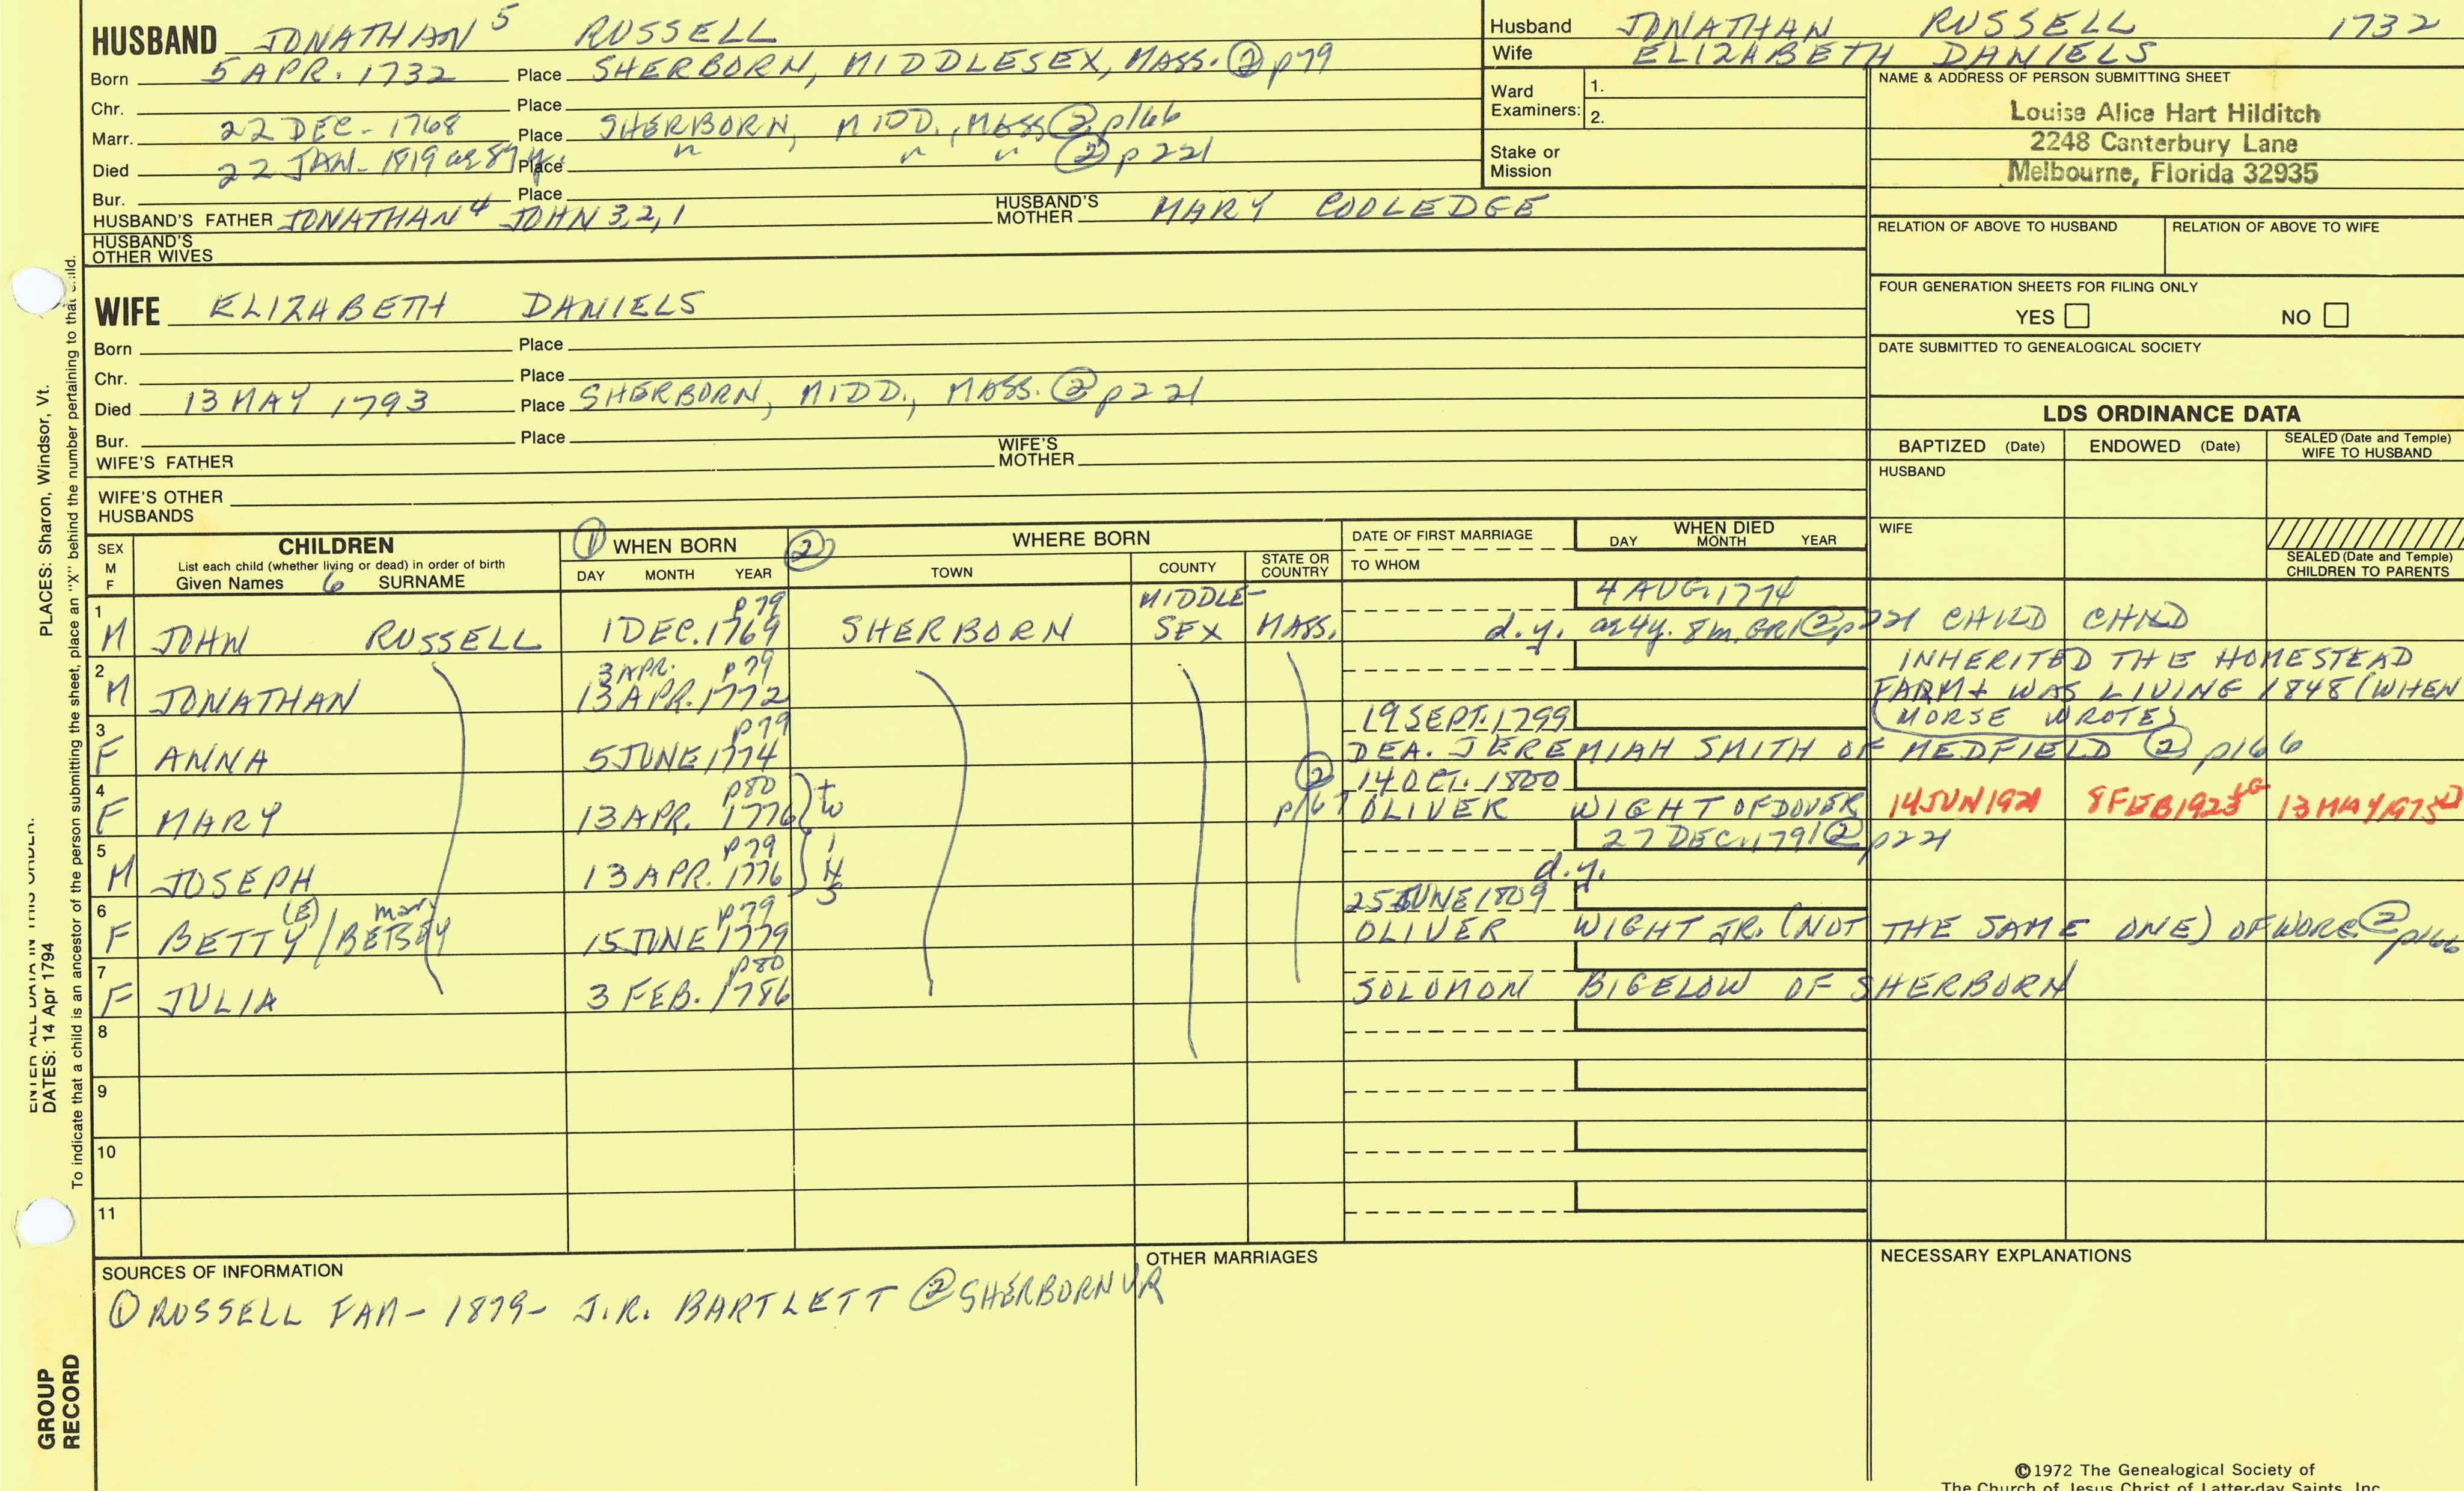 HUSBAND JONATHAN 5 RUSSELL
Born 5 APR. 1732 Place SHERBORN, MIDDLESEX, MASS. ② p79
Chr. Place
Marr. 22 DEC - 1768 Place SHERBORN, MIDD., MASS ② p166
Died 22 JAN - 1819 ae 87 y. Place " " " ② p221
Bur. Place
HUSBAND'S FATHER JONATHAN 4 JOHN 3, 2, 1 HUSBAND'S MOTHER MARY COOLEDGE
HUSBAND'S OTHER WIVES
WIFE ELIZABETH DANIELS
Born Place
Chr. Place
Died 13 MAY 1793 Place SHERBORN, MIDD., MASS. ② p221
Bur. Place
WIFE'S FATHER WIFE'S MOTHER
WIFE'S OTHER HUSBANDS
Husband JONATHAN RUSSELL 1732
Wife ELIZABETH DANIELS
Ward Examiners: 1.
2.
Stake or Mission
NAME & ADDRESS OF PERSON SUBMITTING SHEET
Louise Alice Hart Hilditch
2248 Canterbury Lane
Melbourne, Florida 32935
RELATION OF ABOVE TO HUSBAND RELATION OF ABOVE TO WIFE
FOUR GENERATION SHEETS FOR FILING ONLY
YES NO
DATE SUBMITTED TO GENEALOGICAL SOCIETY
LDS ORDINANCE DATA
BAPTIZED (Date) ENDOWED (Date) SEALED (Date and Temple) WIFE TO HUSBAND
HUSBAND
WIFE
SEALED (Date and Temple) CHILDREN TO PARENTS
SEX M F CHILDREN ① WHEN BORN ② WHERE BORN DATE OF FIRST MARRIAGE WHEN DIED
List each child (whether living or dead) in order of birth
Given Names 6 SURNAME DAY MONTH YEAR TOWN COUNTY STATE OR COUNTRY TO WHOM DAY MONTH YEAR
1 p79 MIDDLE- 4 AUG. 1774
M JOHN RUSSELL 1 DEC. 1769 SHERBORN SEX MASS. d.y. ae 4y. 8m. GR1 ② p221 CHILD CHILD
2 3 APR. p79 INHERITED THE HOMESTEAD
M JONATHAN 13 APR. 1772 FARM + WAS LIVING 1848 (WHEN
3 p79 19 SEPT. 1799 MORSE WROTE)
F ANNA 5 JUNE 1774 DEA. JEREMIAH SMITH OF MEDFIELD ② p166
4 p80 tw ② 14 OCT. 1800
F MARY 13 APR. 1776 p167 OLIVER WIGHT OF DOVER 14 JUN 1921 8 FEB 1923 LG 13 MAY 1975
5 p79 ins 27 DEC. 1791 ② p221
M JOSEPH 13 APR. 1776 d.y.
6 (E) mary p79 25 JUNE 1809
F BETTY / BETSEY 15 JUNE 1779 OLIVER WIGHT JR. (NOT THE SAME ONE) OF WORC. ② p166
7 p80
F JULIA 3 FEB. 1786 SOLOMON BIGELOW OF SHERBORN
8
9
10
11
SOURCES OF INFORMATION OTHER MARRIAGES NECESSARY EXPLANATIONS
① RUSSELL FAM - 1879 - J.R. BARTLETT ② SHERBORN VR
©1972 The Genealogical Society of
The Church of Jesus Christ of Latter-day Saints, Inc.
ENTER ALL DATA IN THIS ORDER:
DATES: 14 Apr 1794 PLACES: Sharon, Windsor, Vt.
To indicate that a child is an ancestor of the person submitting the sheet, place an "X" behind the number pertaining to that child.
GROUP RECORD